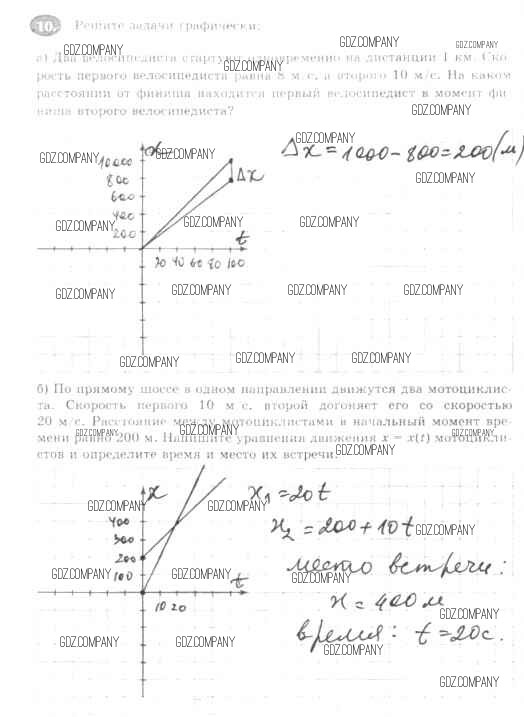 10. Решите задачи графически:
GDZ.COMPANY GDZ.COMPANY GDZ.COMPANY
а) Два велосипедиста стартуют одновременно на дистанции 1 км. Ско-
GDZ.COMPANY
рость первого велосипедиста равна 8 м/с, а второго 10 м/с. На каком
расстоянии от финиша находится первый велосипедист в момент фи-
GDZ.COMPANY
ниша второго велосипедиста?
GDZ.COMPANY
x
Δx = 1000 - 800 = 200 (м)
GDZ.COMPANY GDZ.COMPANY
10000
800
Δx
GDZ.COMPANY
600
400
GDZ.COMPANY GDZ.COMPANY GDZ.COMPANY
200
t
20 40 60 80 100
GDZ.COMPANY GDZ.COMPANY GDZ.COMPANY GDZ.COMPANY
GDZ.COMPANY GDZ.COMPANY GDZ.COMPANY
б) По прямому шоссе в одном направлении движутся два мотоциклис-
та. Скорость первого 10 м/с, второй догоняет его со скоростью
20 м/с. Расстояние между мотоциклистами в начальный момент вре-
GDZ.COMPANY GDZ.COMPANY GDZ.COMPANY
мени равно 200 м. Напишите уравнения движения x = x(t) мотоцикли-
стов и определите время и место их встречи.
GDZ.COMPANY GDZ.COMPANY GDZ.COMPANY
x
x₁ = 20t
GDZ.COMPANY GDZ.COMPANY GDZ.COMPANY
400
x₂ = 200 + 10t
GDZ.COMPANY
300
200
место встречи:
100
t
GDZ.COMPANY GDZ.COMPANY GDZ.COMPANY
10 20
x = 400 м
GDZ.COMPANY
время: t = 20 с.
GDZ.COMPANY GDZ.COMPANY GDZ.COMPANY
GDZ.COMPANY